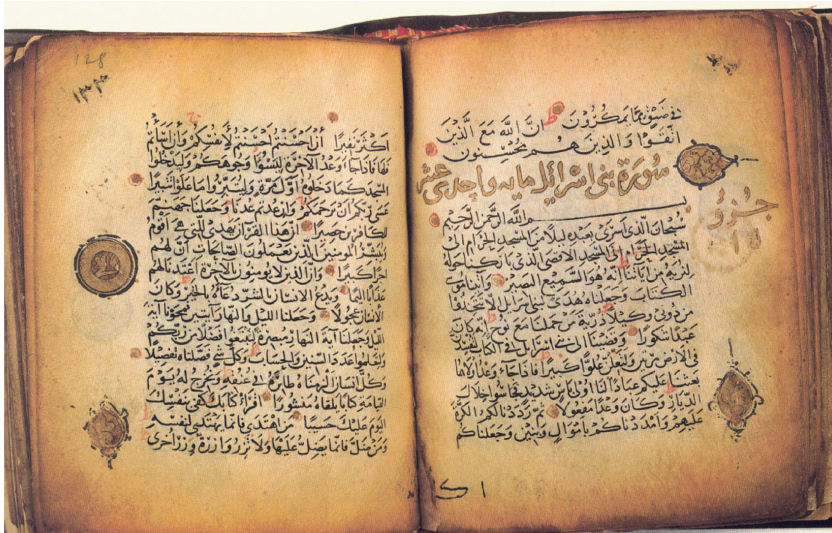 في ضيق مما يمكرون ان الله مع الذين
اتقوا والذين هم محسنون
سورة بنى اسرائيل مايه واحدى عشر
بسم الله الرحمن الرحيم
سبحان الذى اسرى بعبده ليلا من المسجد الحرام الى
المسجد الحرام الى المسجد الاقصى الذى باركنا حوله
لنريه من اياتنا انه هو السميع البصير واتينا موسى
الكتاب وجعلناه هدى لبنى اسرائل الا تتخذوا
من دونى وكيلا ذرية من حملنا مع نوح انه كان
عبدا شكورا وقضينا الى بنى اسرائل في الكتاب لتفسدن
في الارض مرتين ولتعلن علوا كبيرا فاذا جاء وعد اولاهما
بعثنا عليكم عبادا لنا اولى باس شديد فجاسوا خلال
الديار وكان وعدا مفعولا ثم رددنا لكم الكرة
عليهم وامددناكم باموال وبنين وجعلناكم
جزؤ
١٥
128
اكثر نفيرا ان احسنتم احسنتم لانفسكم وان اسأتم
فلها فاذا جاء وعد الاخرة ليسؤا وجوهكم وليدخلوا
المسجد كما دخلوه اول مرة وليتبروا ما علوا تتبيرا
عسى ربكم ان يرحمكم وان عدتم عدنا وجعلنا جهنم
للكافرين حصيرا ان هذا القران يهدى للتى هى اقوم
ويبشر المومنين الذين يعملون الصالحات ان لهم
اجرا كبيرا وان الذين لا يومنون بالاخرة اعتدنا لهم
عذابا اليما ويدع الانسان بالشر دعاه بالخير وكان
الانسان عجولا وجعلنا الليل والنهار ايتين فمحونا اية
الليل وجعلنا اية النهار مبصرة لتبتغوا فضلا من ربكم
ولتعلموا عدد السنين والحساب وكل شى فصلناه تفصيلا
وكل انسان الزمناه طايره في عنقه ونخرج له يوم
القيامة كتابا يلقاه منشورا اقرا كتابك كفى بنفسك
اليوم عليك حسيبا من اهتدى فانما يهتدى لنفسه
ومن ضل فانما يضل عليها ولا تزر وازرة وزر اخرى